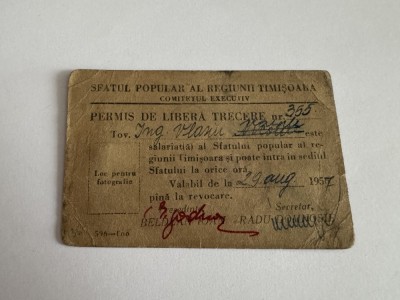 SFATUL POPULAR AL REGIUNII TIMIȘOARA
COMITETUL EXECUTIV
PERMIS DE LIBERĂ TRECERE nr. 355
Tov. Ing Vlazu este
salariat(ă) al Sfatului popular al re-
giunii Timișoara și poate intra in sediul
Sfatului la orice oră.
Loc pentru
fotografie
Valabil de la 29 aug 1957
pină la revocare.
Secretar,
RADU